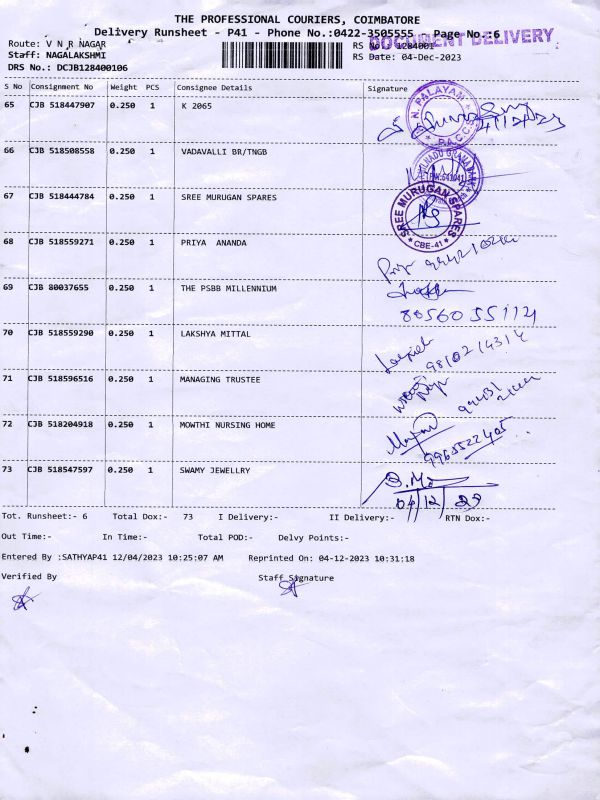 THE PROFESSIONAL COURIERS, COIMBATORE
Delivery Runsheet - P41 - Phone No.:0422-3505555 Page No.:6
DOCUMENT DELIVERY
Route: V N R NAGAR RS No 1284001
Staff: NAGALAKSHMI RS Date: 04-Dec-2023
DRS No.: DCJB128400106
S No Consignment No Weight PCS Consignee Details Signature
65 CJB 518447907 0.250 1 K 2065
N. PALAYAM P.A.C.C.S
66 CJB 518508558 0.250 1 VADAVALLI BR/TNGB
67 CJB 518444784 0.250 1 SREE MURUGAN SPARES
SREE MURUGAN SPARES
* CBE-41 *
68 CJB 518559271 0.250 1 PRIYA ANANDA
Priya
69 CJB 80037655 0.250 1 THE PSBB MILLENNIUM
8056055114
70 CJB 518559290 0.250 1 LAKSHYA MITTAL
9810214314
71 CJB 518596516 0.250 1 MANAGING TRUSTEE
72 CJB 518204918 0.250 1 MOWTHI NURSING HOME
9965522405
73 CJB 518547597 0.250 1 SWAMY JEWELLRY
04/12/23
Tot. Runsheet:- 6 Total Dox:- 73 I Delivery:- II Delivery:- RTN Dox:-
Out Time:- In Time:- Total POD:- Delvy Points:-
Entered By :SATHYAP41 12/04/2023 10:25:07 AM Reprinted On: 04-12-2023 10:31:18
Verified By Staff Signature